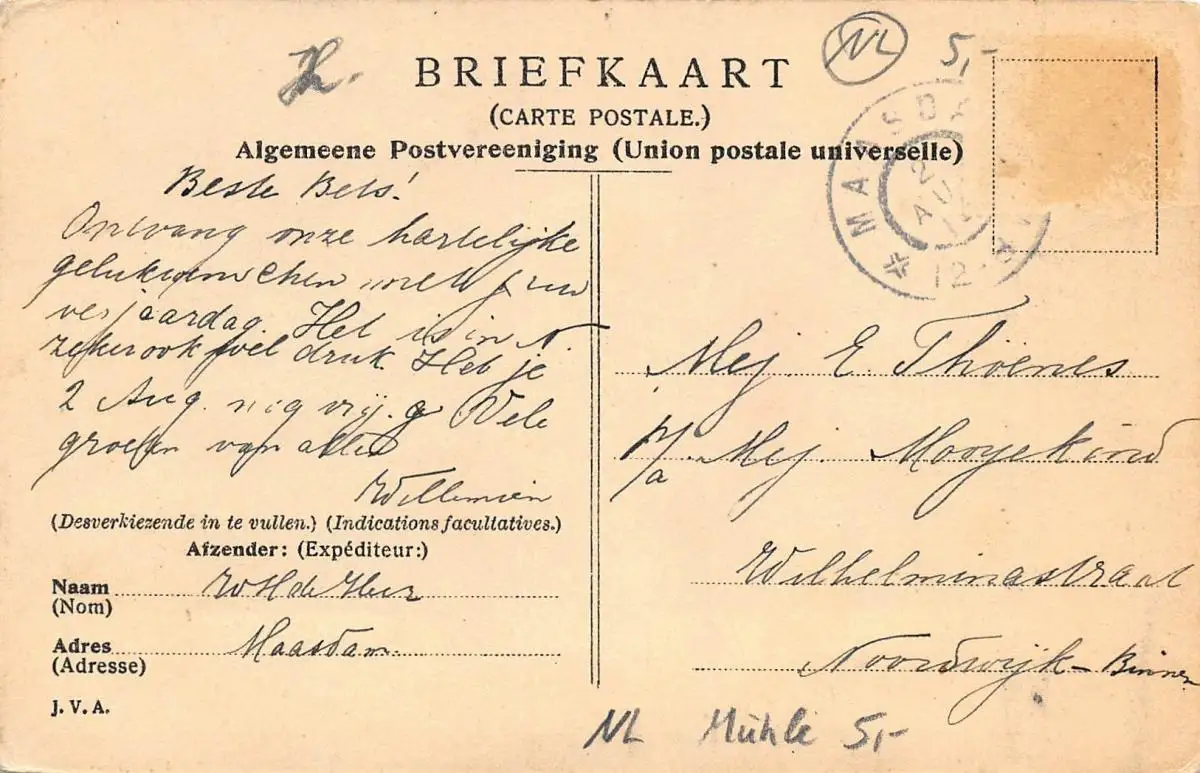 H.
NL
5,-
BRIEFKAART
(CARTE POSTALE.)
Algemeene Postvereeniging (Union postale universelle)
MAASDA
2
AU
12
12
Beste Bets!
Ontvang onze hartelijke
gelukwenschen met j uw
verjaardag. Het is in N.
zeker ook wel druk. Heb je
2 Aug. nog vrij. Vele
groeten van allen
Willemien
(Desverkiezende in te vullen.) (Indications facultatives.)
Afzender: (Expéditeur:)
Naam WH de Heer
(Nom)
Adres Maasdam.
(Adresse)
J. V. A.
Mej. E. Thoenes
p/a Mej. Mooyekind
Wilhelminastraat
Noordwijk-Binnen
NL Mühle 5,-